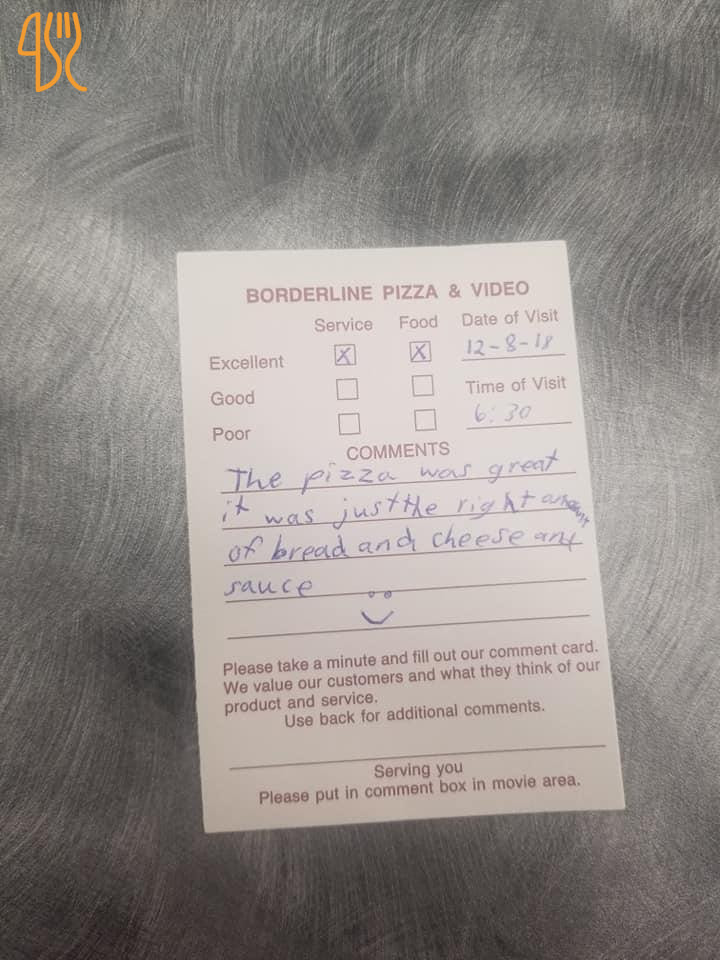 BORDERLINE PIZZA & VIDEO
Service Food Date of Visit
Excellent X X 12-8-18
Good Time of Visit
Poor 6:30
COMMENTS
The pizza was great
it was just the right amount
of bread and cheese and
sauce
Please take a minute and fill out our comment card.
We value our customers and what they think of our
product and service.
Use back for additional comments.
Serving you
Please put in comment box in movie area.